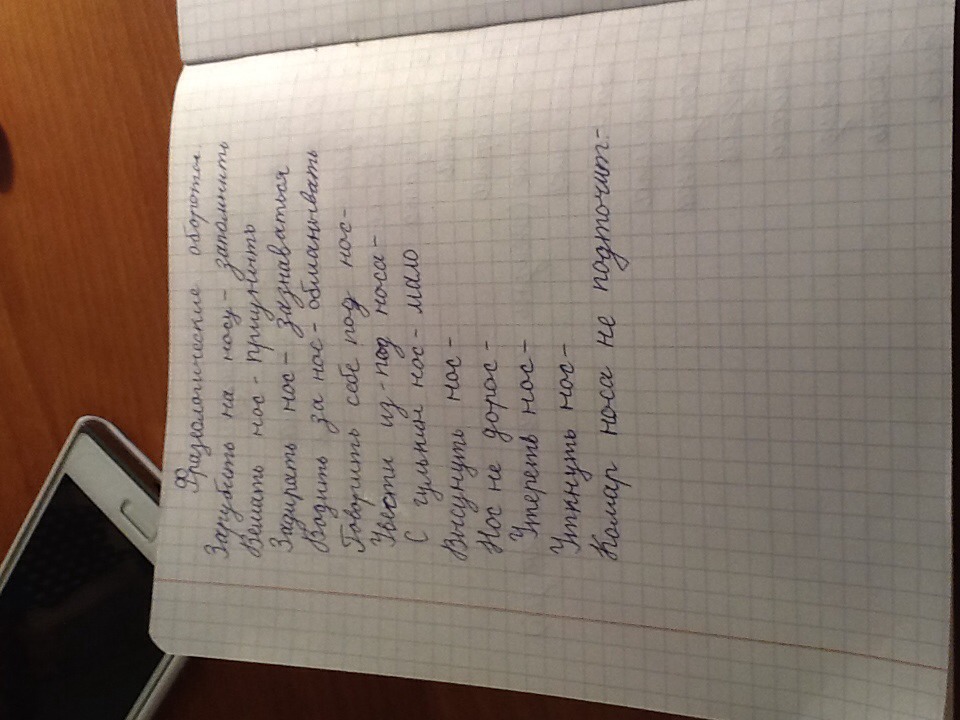 Фразеологические обороты.
Зарубить на носу - запомнить
Вешать нос - приуныть
Задирать нос - зазнаваться
Водить за нос - обманывать
Говорить себе под нос -
Увести из-под носа -
С гулькин нос - мало
Высунуть нос -
Нос не дорос -
Утереть нос -
Уткнуть нос -
Комар носа не подточит -